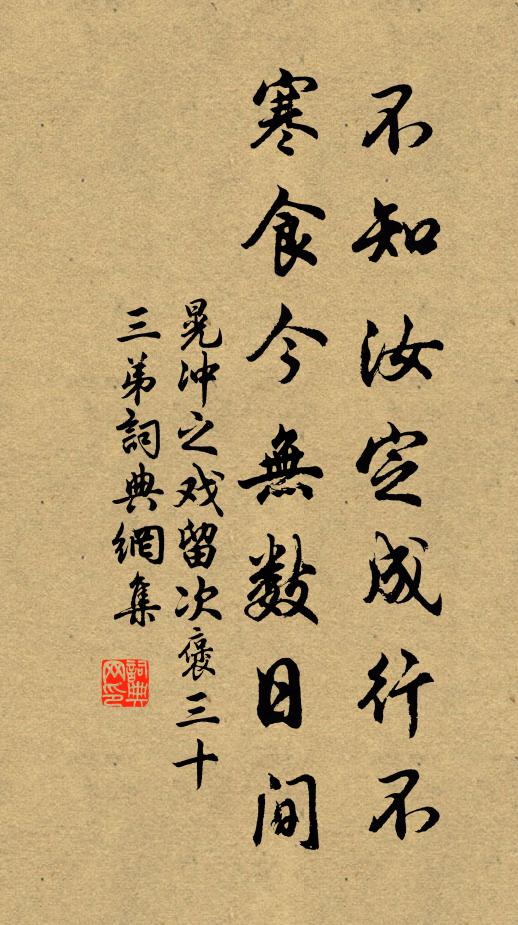 不知汝定成行不
寒食今無数日间
晃冲之戏留次褒三十
三弟詞典網集
詞典
网印